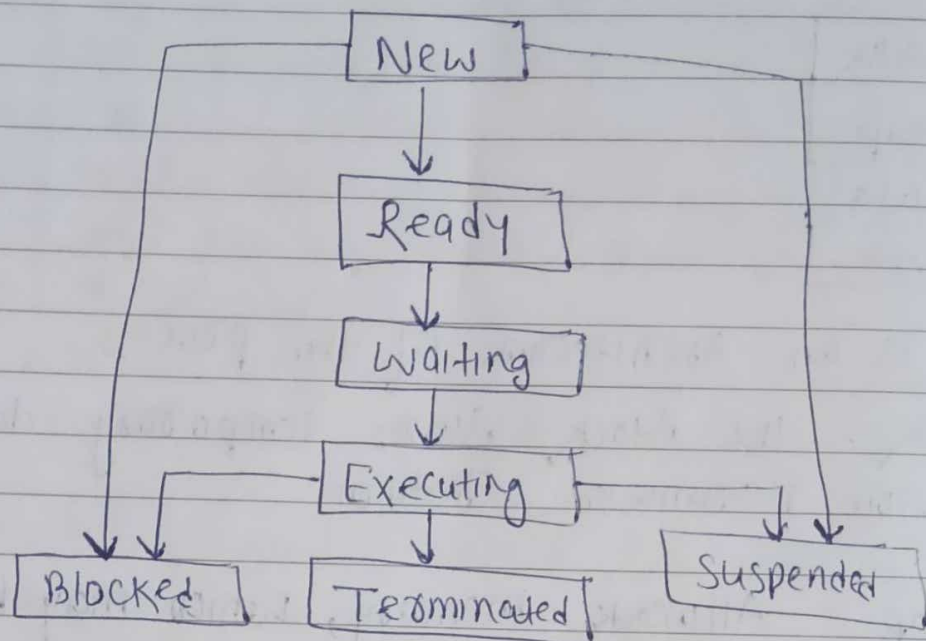 New
Ready
Waiting
Executing
Blocked
Terminated
Suspended